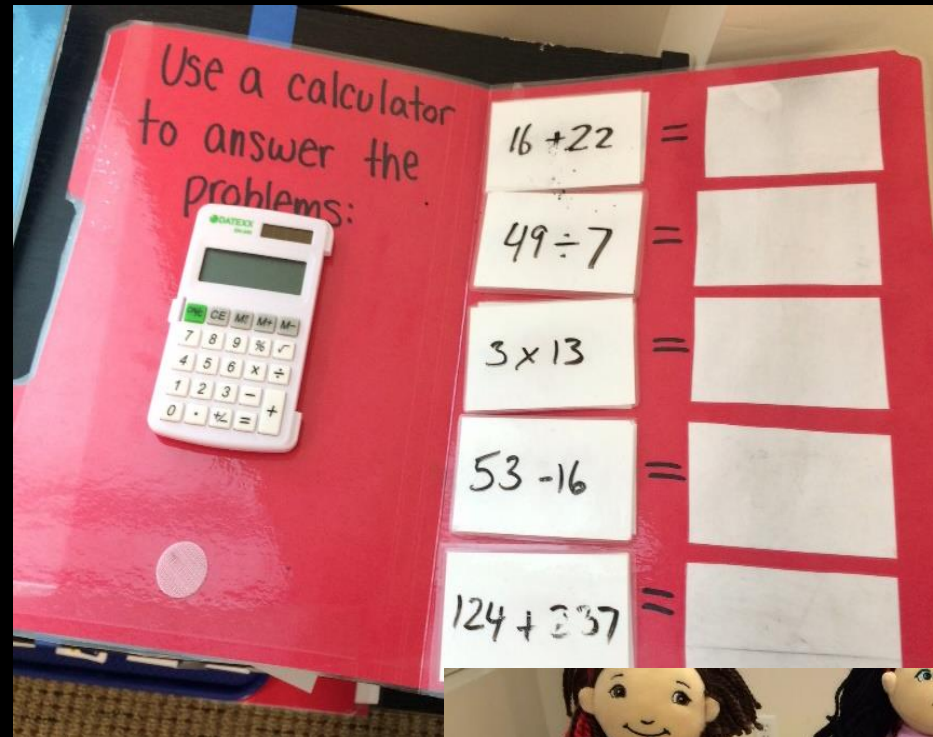 Use a calculator
to answer the
problems:
DATEXX
CE MT M+ M-
7 8 9 % √
4 5 6 x ÷
1 2 3 -
0 . +/- = +
16 + 22 =
49 ÷ 7 =
3 x 13 =
53 - 16 =
124 + =